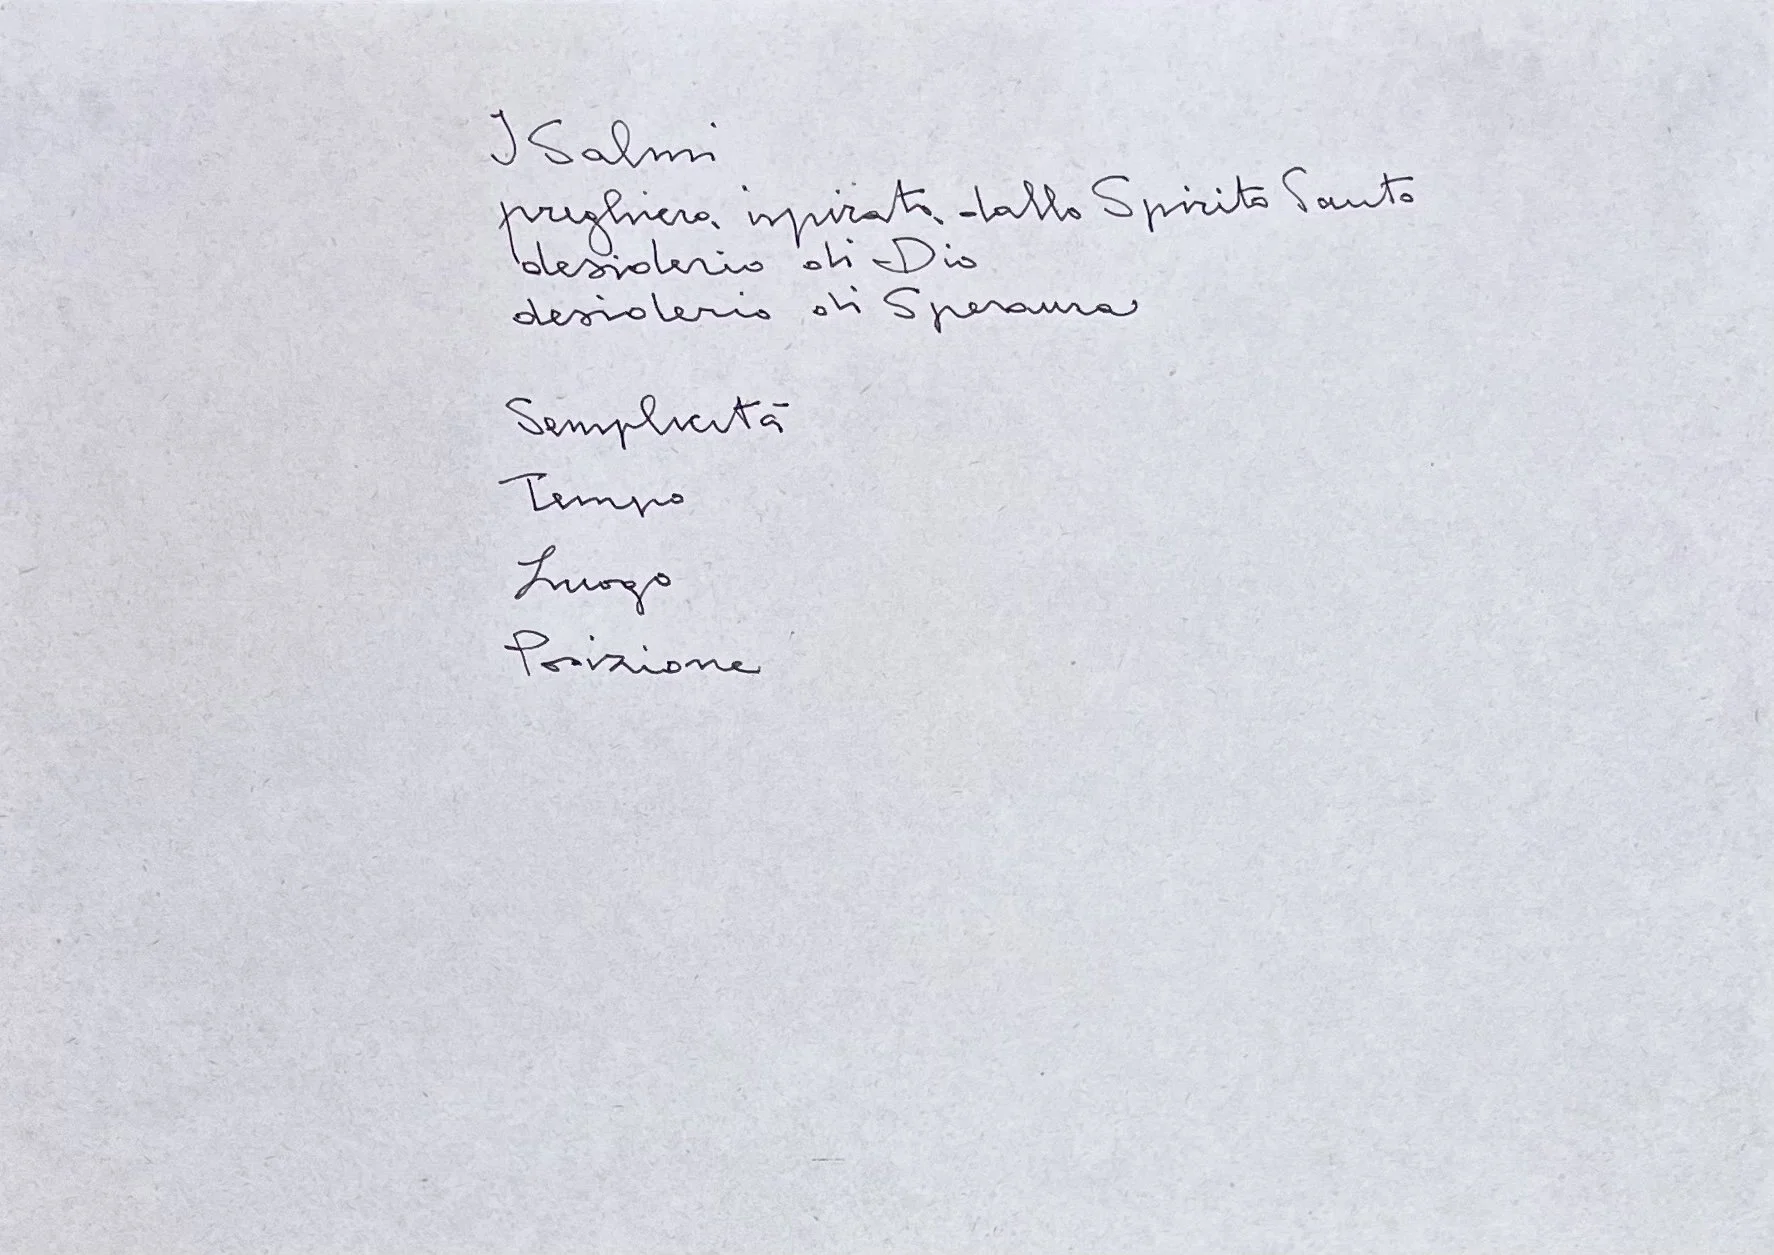 I Salmi
preghiera ispirata dallo Spirito Santo
desiderio di Dio
desiderio di Speranza
Semplicità
Tempo
Luogo
Posizione